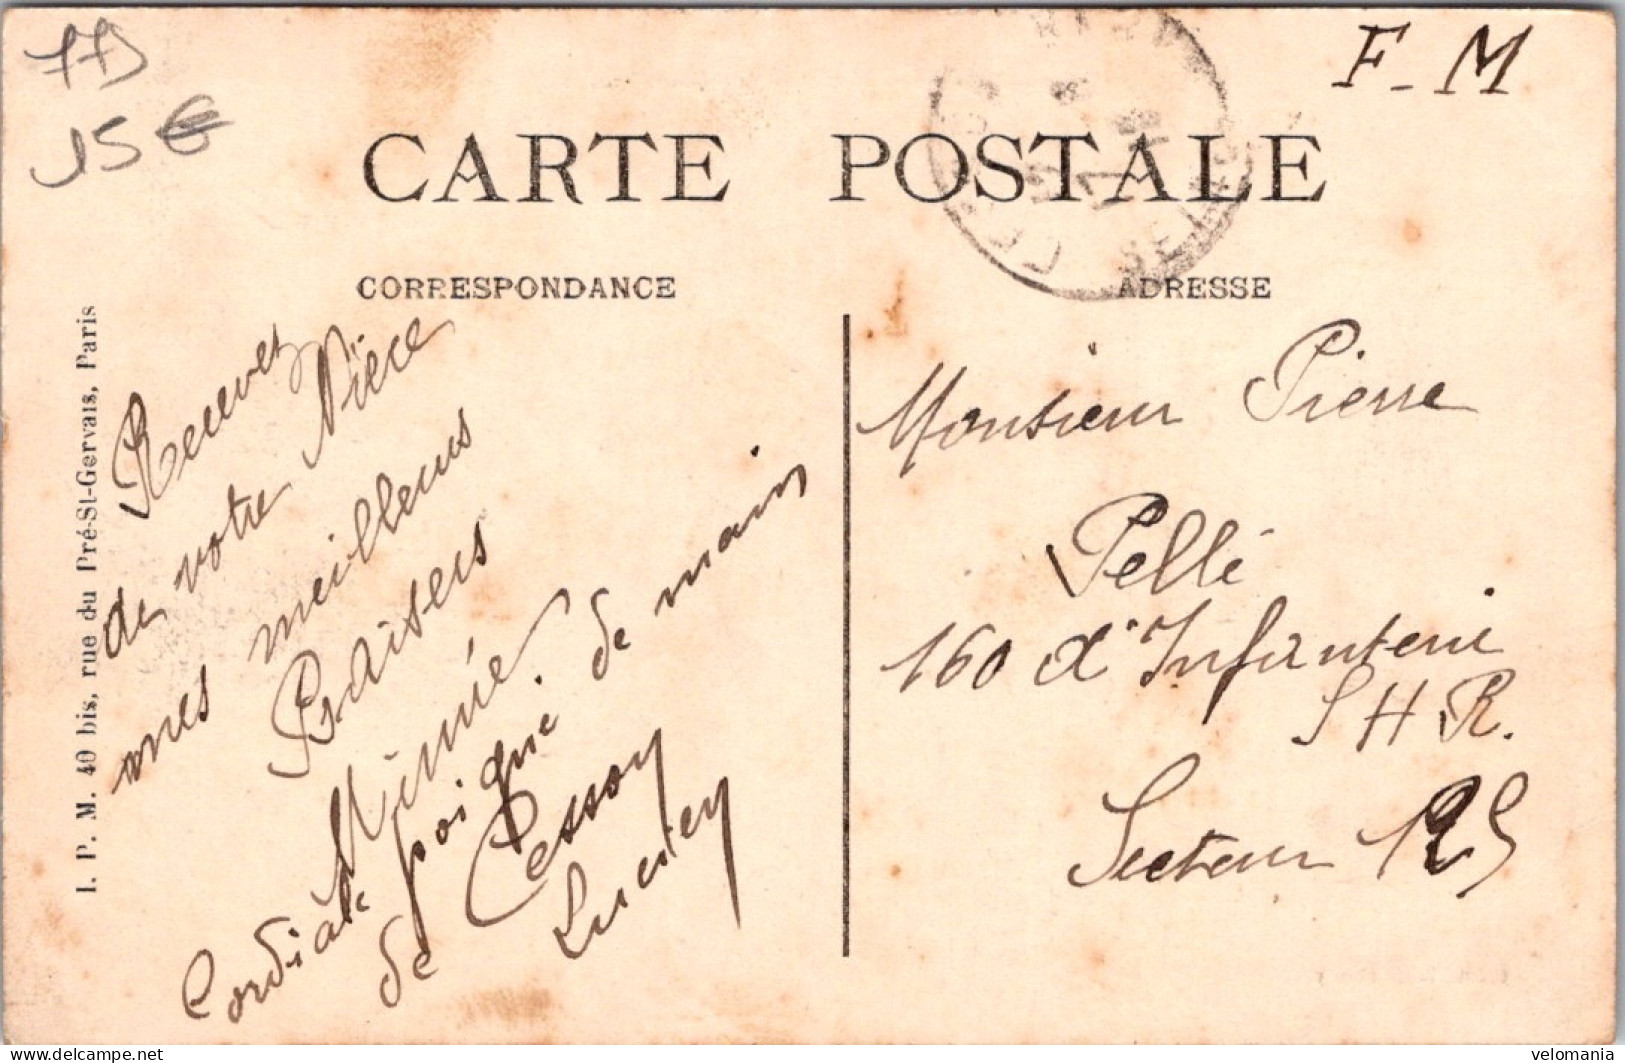 77
15€
F-M
CARTE POSTALE
CORRESPONDANCE
ADRESSE
I. P. M. 40 bis, rue du Pré-St-Gervais, Paris
Recevez
de votre Nièce
mes meilleurs
Baisers
Mimie
Cordiale poignée de main
de Cesson
Lucien
Monsieur Pierre
Pellé
160 d'Infanterie
S H R.
Secteur 125
velomania